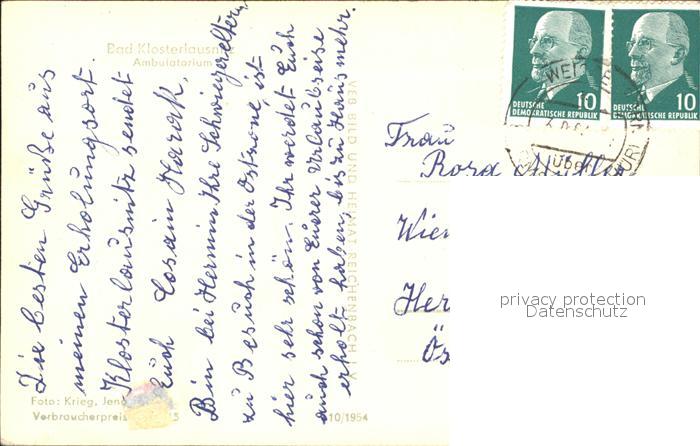 Bad Klosterlausnitz
Ambulatorium
Die besten Grüße aus
meinen Erholungsort.
Klosterlausnitz sendet
Euch Cosain Harak,
Bin bei Hermins Ihre Schwiegereltern,
zu Besuch in der Ostzone, ist
hier sehr schön. Ihr werdet Euch
auch schon von Eurer Urlaubsreise
erholt haben, bis zu Haus mehr.
Foto: Krieg, Jena
Verbraucherpreis
10/1954
VEB BILD UND HEIMAT REICHENBACH I. V.
10
DEUTSCHE
DEMOKRATISCHE REPUBLIK
10
DEUTSCHE
DEMOKRATISCHE REPUBLIK
Frau
Rosa Müller
Wien
Her
Ös
privacy protection
Datenschutz